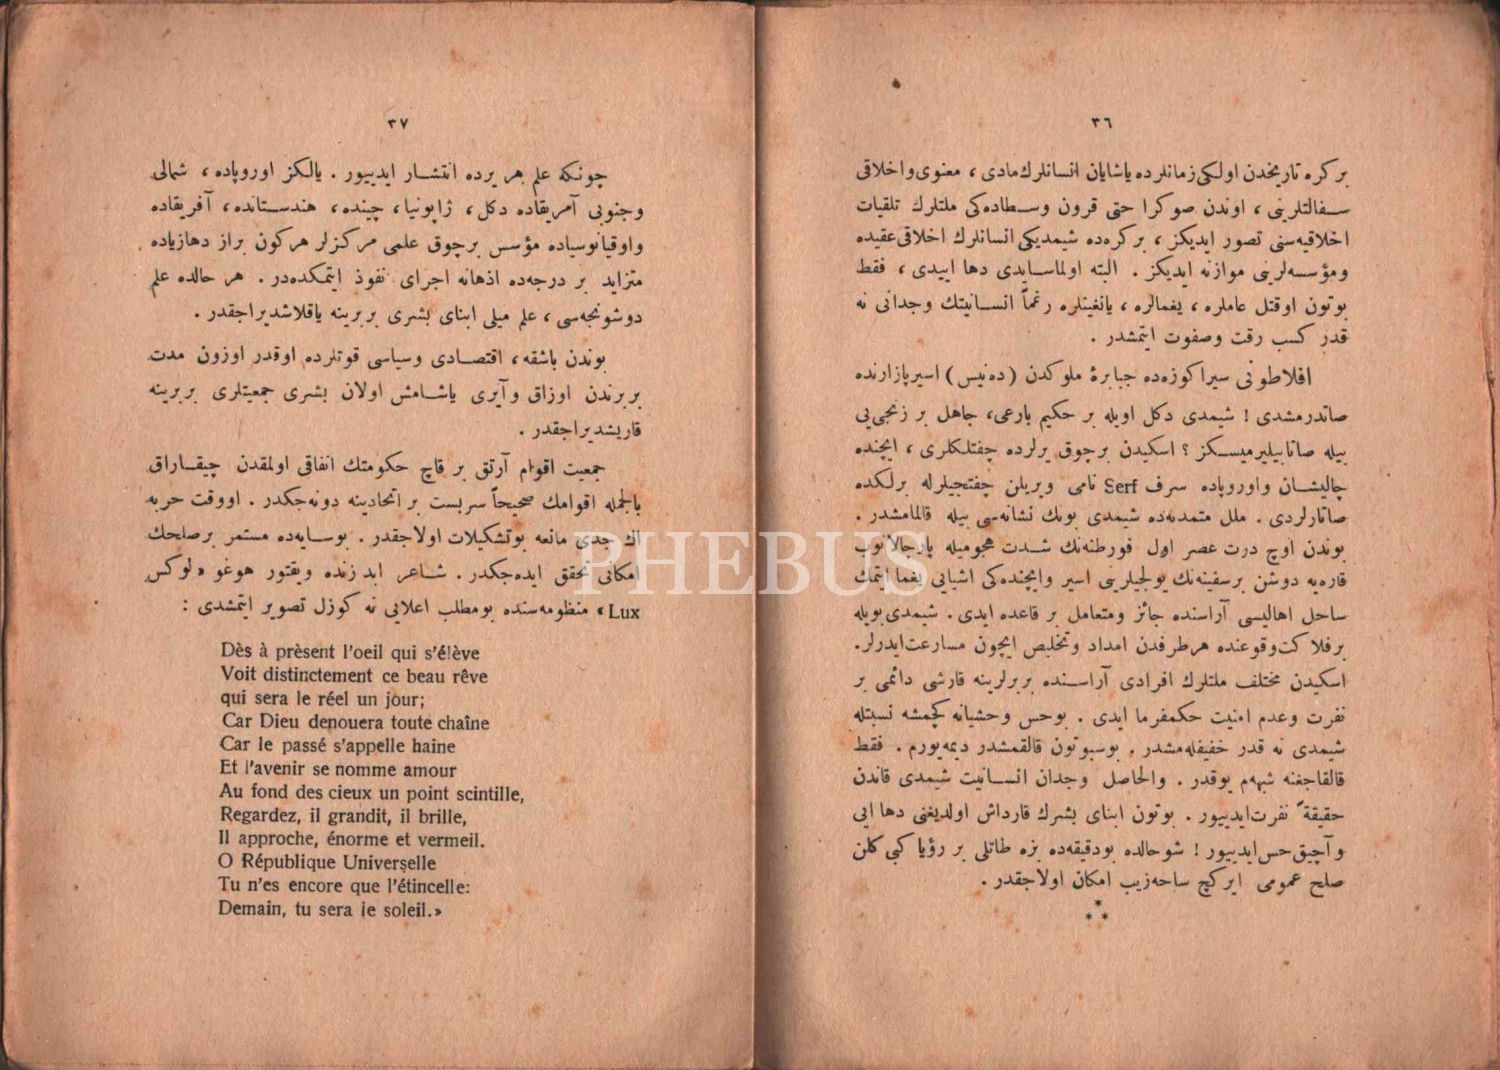 ٣٦
بركره تاريخدن اولكی زمانلرده یاشایان انسانلرك مادی ، معنوی واخلاقی
سفالتلرینی ، اوندن صوكرا حتی قرون وسطاده‌كی ملتلرك تلقیات
اخلاقیه‌سنی تصور ایدیكز ، بركره‌ده شیمدیكی انسانلرك اخلاقی عقیده
ومؤسسه‌لرینی موازنه ایدیكز . البته اولماسایدی دها اییدی ، فقط
بوتون اوقتل عاملره ، یغمالره ، یانغینلره رغماً انسانیتك وجدانی نه
قدر كسب رقت وصفوت ایتمشدر .
افلاطونی سیراكوزه‌ده جبابرۀ ملوكدن (ده‌نیس) اسیرپازارنده
صاتدرمشدی ! شیمدی دكل اویله بر حكیم بارعی، جاهل بر زنجی‌یی
بیله صاتابیلیرمیسكز ؟ اسكیدن برچوق یرلرده چفتلكلری ، ایچنده
چالیشان واوروپاده سرف Serf نامی ویریلن چفتجیلرله برلكده
صاتارلردی . ملل متمدنه‌ده شیمدی بونك نشانه‌سی بیله قالمامشدر .
بوندن اوچ درت عصر اول فورطنه‌نك شدت هجومیله پارچالانوب
قاره‌یه دوشن برسفینه‌نك یولجیلرینی اسیر وایچنده‌كی اشیایی یغما ایتمك
ساحل اهالیسی آراسنده جائز ومتعامل بر قاعده ایدی . شیمدی بویله
برفلاكت وقوعنده هرطرفدن امداد وتخلیص ایچون مسارعت ایدرلر.
اسكیدن مختلف ملتلرك افرادی آراسنده بربرلرینه قارشی دائمی بر
نفرت وعدم امنیت حكمفرما ایدی . بوحس وحشیانه كچمشه نسبتله
شیمدی نه قدر خفیفله‌مشدر . بوسبوتون قالقمشدر دیمه‌یورم . فقط
قالقاجغنه شبهه‌م یوقدر . والحاصل وجدان انسانیت شیمدی قاندن
حقیقةً نفرت ایدییور . بوتون ابنای بشرك قارداش اولدیغنی دها ایی
وآچیق حس ایدییور ! شوحالده بودقیقه‌ده بزه طاتلی بر رؤیا كبی كلن
صلح عمومی ایركچ ساحه‌زیب امكان اولاجقدر .
***
٣٧
چونكه علم هر یرده انتشار ایدییور . یالكز اوروپاده ، شمالی
وجنوبی آمریقاده دكل ، ژاپونیا، چینده ، هندستانده، آفریقاده
واوقیانوسیاده مؤسس برچوق علمی مركزلر هركون براز دهازیاده
متزاید بر درجه‌ده اذهانه اجرای نفوذ ایتمكده‌در . هر حالده علم
دوشونجه‌سی ، علم میلی ابنای بشری بربرینه یاقلاشدیراجقدر .
بوندن باشقه ، اقتصادی وسیاسی قوتلرده اوقدر اوزون مدت
بربرندن اوزاق وآیری یاشامش اولان بشری جمعیتلری بربرینه
قاریشدیراجقدر .
جمعیت اقوام آرتق بر قاچ حكومتك اتفاقی اولمقدن چیقاراق
بالجمله اقوامك صحیحاً سربست بر اتحادینه دونه‌جكدر . اووقت حربه
اك جدی مانعه بوتشكیلات اولاجقدر . بوسایه‌ده مستمر برصلحك
امكانی تحقق ایده‌جكدر . شاعر ابدزنده ویقتور هوغو «لوكس
Lux» منظومه‌سنده بومطلب اعلایی نه كوزل تصویر ایتمشدی :
Dès à prèsent l'oeil qui s'élève
Voit distinctement ce beau rêve
qui sera le réel un jour;
Car Dieu denouera toute chaîne
Car le passé s'appelle haine
Et l'avenir se nomme amour
Au fond des cieux un point scintille,
Regardez, il grandit, il brille,
Il approche, énorme et vermeil.
O République Universelle
Tu n'es encore que l'étincelle:
Demain, tu sera le soleil.»
PHEBUS